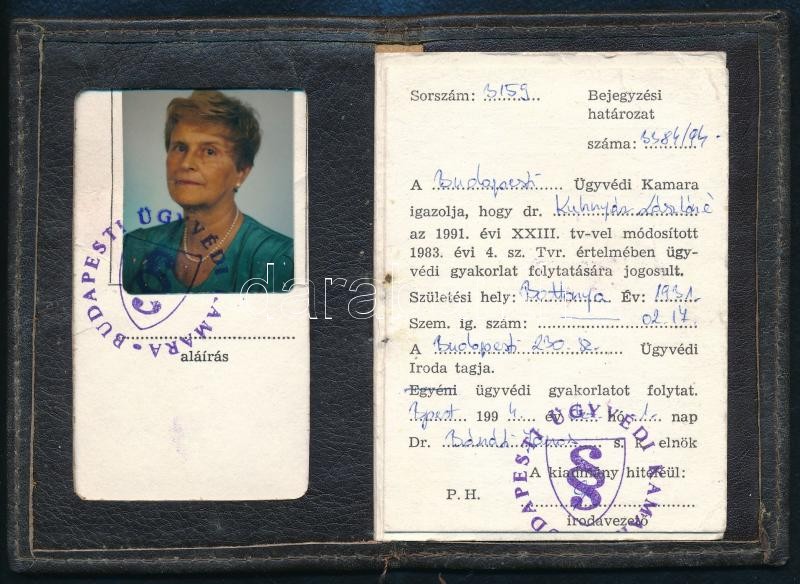 BUDAPESTI ÜGYVÉDI KAMARA
aláírás
Sorszám: 3159
Bejegyzési
határozat
száma: 3384/94.
A Budapesti Ügyvédi Kamara
igazolja, hogy dr. Lászlóné
az 1991. évi XXIII. tv-vel módósított
1983. évi 4. sz. Tvr. értelmében ügy-
védi gyakorlat folytatására jogosult.
Születési hely: Battonya Év: 1931.
Szem. ig. szám: 02.17.
A Budapesti 230. sz. Ügyvédi
Iroda tagja.
Egyéni ügyvédi gyakorlatot folytat.
Bpest 1994. év hó 1. nap
Dr. Bánáti János s. k. elnök
A kiadmány hiteléül:
P. H.
irodavezető
BUDAPESTI ÜGYVÉDI KAMARA
§
darabanth